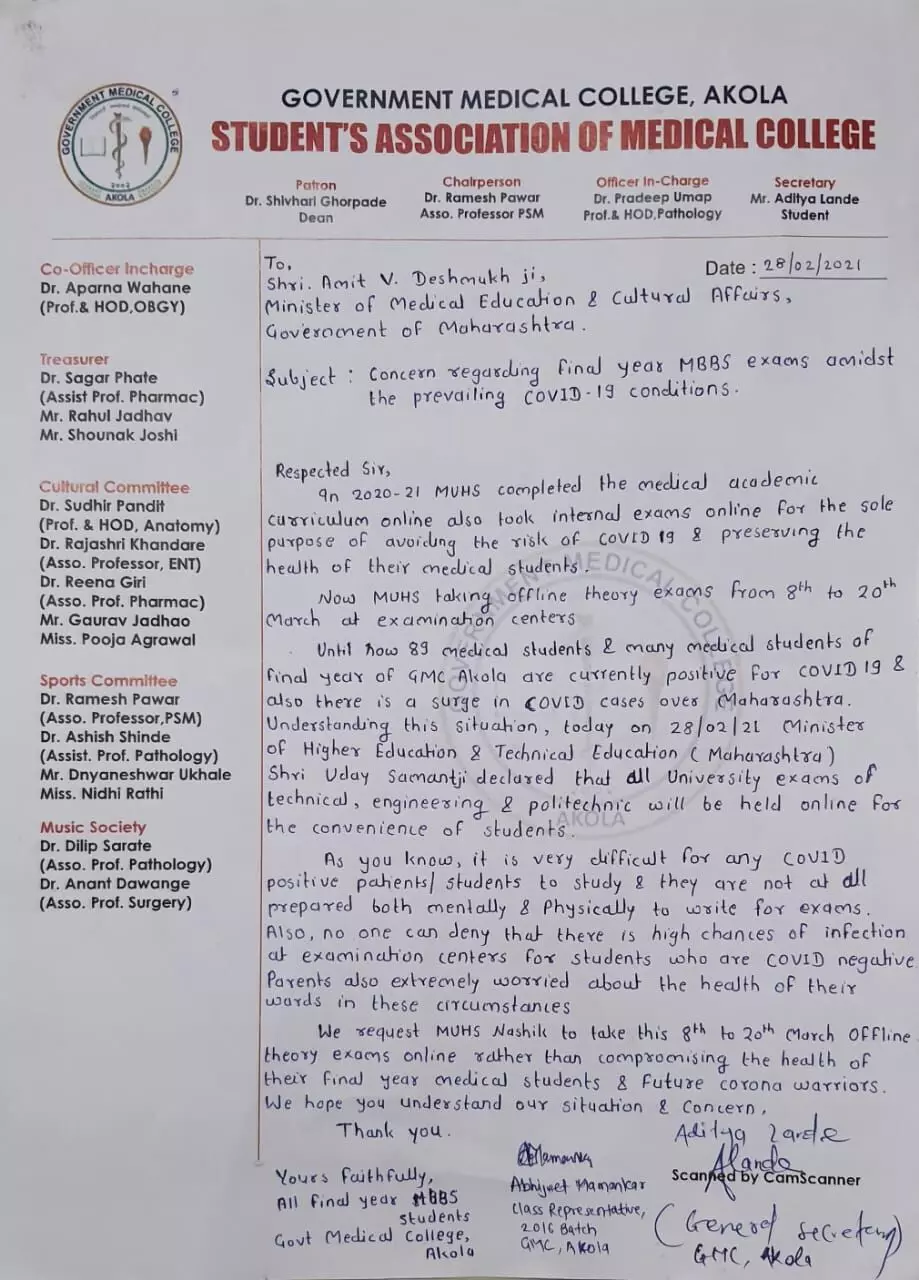 GOVERNMENT MEDICAL COLLEGE
2002
AKOLA
GOVERNMENT MEDICAL COLLEGE, AKOLA
STUDENT'S ASSOCIATION OF MEDICAL COLLEGE
Patron
Dr. Shivhari Ghorpade
Dean
Chairperson
Dr. Ramesh Pawar
Asso. Professor PSM
Officer In-Charge
Dr. Pradeep Umap
Prof.& HOD,Pathology
Secretary
Mr. Aditya Lande
Student
Co-Officer Incharge
Dr. Aparna Wahane
(Prof.& HOD,OBGY)
Treasurer
Dr. Sagar Phate
(Assist Prof. Pharmac)
Mr. Rahul Jadhav
Mr. Shounak Joshi
Cultural Committee
Dr. Sudhir Pandit
(Prof. & HOD, Anatomy)
Dr. Rajashri Khandare
(Asso. Professor, ENT)
Dr. Reena Giri
(Asso. Prof. Pharmac)
Mr. Gaurav Jadhao
Miss. Pooja Agrawal
Sports Committee
Dr. Ramesh Pawar
(Asso. Professor,PSM)
Dr. Ashish Shinde
(Assist. Prof. Pathology)
Mr. Dnyaneshwar Ukhale
Miss. Nidhi Rathi
Music Society
Dr. Dilip Sarate
(Asso. Prof. Pathology)
Dr. Anant Dawange
(Asso. Prof. Surgery)
Date : 28/02/2021
To,
Shri. Amit V. Deshmukh ji,
Minister of Medical Education & Cultural Affairs,
Government of Maharashtra.
Subject : Concern regarding final year MBBS exams amidst
the prevailing COVID-19 conditions.
Respected Sir,
In 2020-21 MUHS completed the medical academic
curriculum online also took internal exams online for the sole
purpose of avoiding the risk of COVID 19 & preserving the
health of their medical students.
Now MUHS taking offline theory exams from 8th to 20th
March at examination centers
Until now 89 medical students & many medical students of
final year of GMC Akola are currently positive for COVID 19 &
also there is a surge in COVID cases over Maharashtra.
Understanding this situation, today on 28/02/21 Minister
of Higher Education & Technical Education (Maharashtra)
Shri Uday Samantji declared that all University exams of
technical, engineering & politechnic will be held online for
the convenience of students.
As you know, it is very difficult for any COVID
positive patients/students to study & they are not at all
prepared both mentally & Physically to write for exams.
Also, no one can deny that there is high chances of infection
at examination centers for students who are COVID negative
Parents also extremely worried about the health of their
wards in these circumstances
We request MUHS Nashik to take this 8th to 20th March Offline
theory exams online rather than compromising the health of
their final year medical students & future corona warriors.
We hope you understand our situation & Concern.
Thank you.
Yours faithfully,
All final year MBBS
students
Govt Medical College,
Akola
Abhijeet Mamankar
Class Representative,
2016 Batch
GMC, Akola
Aditya Lande
ALande
Scanned by CamScanner
(General Secretary)
GMC, Akola
GOVERNMENT MEDICAL COLLEGE
AKOLA